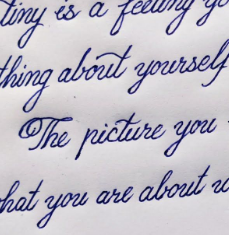 tiny is a feeling yo
thing about yourself
The picture you
what you are about